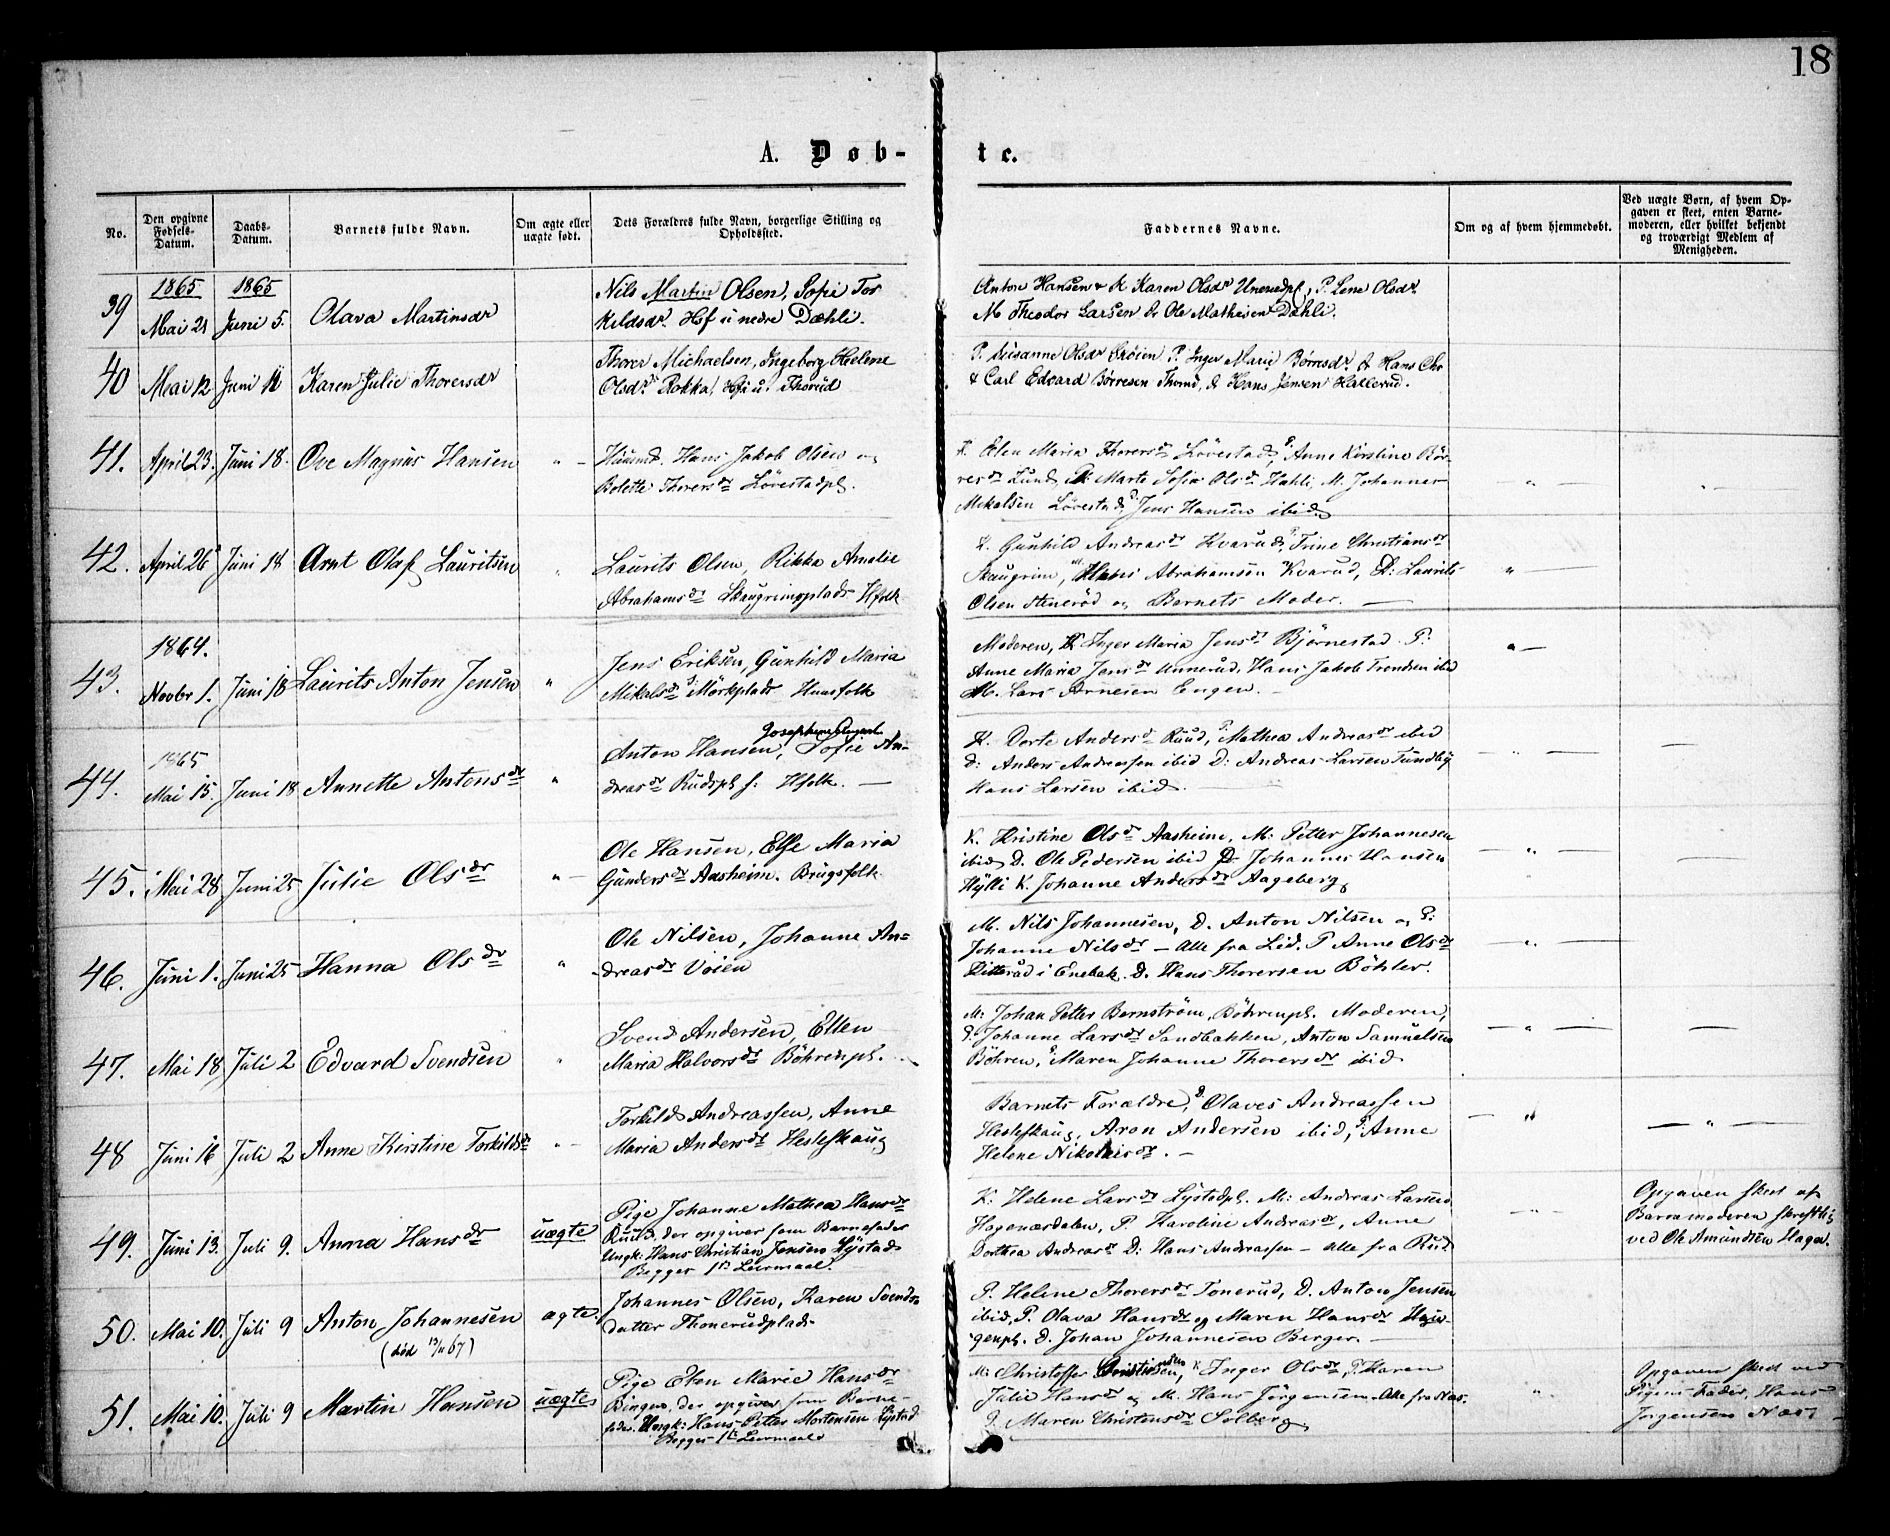 18
A. Døb-
te.
No.
Den opgivne Fødsels-Datum.
Daabs-Datum.
Barnets fulde Navn.
Om ægte eller uægte født.
Dets Forældres fulde Navn, borgerlige Stilling og Opholdssted.
Faddernes Navne.
Om og af hvem hjemmedøbt.
Ved uægte Børn, af hvem Opgaven er skeet, enten Barnemoderen, eller hvilket bekjendt og troværdigt Medlem af Menigheden.
1865 1865
39 Mai 21 Juni 5. Olava Martinsdr
Nils Martin Olsen, Sofie Tor
kildsdr. Hf u nedre Dæhli.
Anton Hansen & K Karen Olsdr P. Lene Olsdr.
M Theodor Larsen & Ole Mathesen Dæhli.
40 Mai 12 Juni 11 Karen Julie Thorersdr
Thorer Michaelsen, Ingeborg Helene
Olsdr. Hf u. Thorud
P. Susanne Olsdr P. Inger Marie Børresdr & Hans Chr
& Carl Edvard Børresen Thorud, & Hans Jensen Hallerud.
41. April 23. Juni 18. Ove Magnus Hansen " –
Huusmd. Hans Jakob Olsen og
Bolette Thorersdr Løvestadpl.
K. Elen Maria Thorersdr Løvestad, P. Anne Kirstine Bør-
resdr Lund, P. Marte Sofie Olsdr Hahli, M. Johannes
Mikalsen Løvestad, D. Jens Hansen ibid.
42. April 26 Juni 18 Arnt Olaf Lauritsen "
Laurits Olsen, Rikka Amalie
Abrahamsdr Skaugrimsplads Hfolk
K. Gunhild Andreasdr Kvarud, P. Trine Christiansdr
Skaugrim, M. Hans Abrahamsen Kvarud, D: Laurits
Olsen Stenerød og Barnets Moder. —
1864.
43. Novbr 1. Juni 18 Laurits Anton Jensen "
Jens Eriksen, Gunhild Maria
Mikalsdr S: Mørkplads Huusfolk
Moderen, K Inger Maria Jensdr Bjørnestad P:
Anne Maria Jensdr Unnerud, Hans Jakob Trondsen ibid
M. Lars Arnesen Engen. –
1865
44. Mai 15. Juni 18 Annette Antonsdr "
Josephine
Anton Hansen, Sofie An-
dreasdr Rudspl s: Hfolk. —
K. Dorte Andersdr Ruud, P. Mathea Andreasdr ibid
D: Anders Andreassen ibid D: Andreas Larsen Tundby
Hans Larsen ibid.
45. Mai 28 Juni 25 Julie Olsdr " –
Ole Hansen, Else Maria
Gundersdr Aasheim. Brugsfolk
K. Kristine Olsdr Aasheim, M: Petter Johannesen
ibid D. Ole Pedersen ibid D: Johannes Hansen
Hylli K. Johanne Andersdr Aageberg.
46. Juni 1. Juni 25 Hanna Olsdr "
Ole Nilsen, Johanne An-
dreasdr Voien
M. Nils Johannesen, D. Anton Nilsen og P:
Johanne Nilsdr – Alle fra Lid. P Anne Olsdr
i Enebak. D. Hans Thorersen Bøhler.
47. Mai 18 Juli 2 Edvard Svendsen "
Svend Andersen, Ellen
Maria Halvorsdr Bøhrenpl.
M: Johan Petter Bernstrøm, Bøhrenpl. Moderen,
P. Johanne Larsdr Sandbakken, Anton Samuelsen
Bøhren, P. Maren Johanne Thorersdr ibid
48 Juni 16 Juli 2 Anne Kirstine Torkildsdr " –
Torkild Andreassen, Anne
Maria Andersdr Hesleskaug
Barnets Forældre, D. Olaves Andreassen
Hesleskaug, Aron Andersen ibid, P: Anne
Helene Nikolaisdr. –
49. Juni 13. Juli 9. Anna Hansdr uægte
Pige Johanne Mathea Hansdr
Ruud, der opgiver som Barnefader
Ungk: Hans Christian Jensen Lystad
Begges 1ste Leiermaal.
K: Helene Larsdr Lystadpl. M: Andreas Larsen
Hagenærdalen, P. Karoline Andreasdr, Anne
Dorthea Andreasdr D: Hans Andreassen – Alle fra Rud
Opgaven skeet af
Barnemoderen skriftlig
ved Ole Amundsen Hagen.
50. Mai 10. Juli 9 Anton Johannesen ægte
(død 13/11 67)
Johannes Olsen, Karen Svends-
datter Thonerudplads
P. Helene Thorersdr Tonerud, D. Anton Jensen
ibid, P. Olava Hansdr og Maren Hansdr
D. Johan Johannesen Berger. —
51. Mai 10. Juli 9 Martin Hansen uægte
Pige Elen Marie Hansdr
Bingen, der opgiver som Barne-
fader. Ungk: Hans Petter Mortensen Lystad
Begges 1ste Leiermaal
M: Christoffer K Inger Olsdr, P. Karen
Julie Hansdr og M. Hans Jørgensen. Alle fra Næs.
P. Maren Christensdr Solberg.
Opgaven skeet ved
Pigens Fader, Hans
Jørgensen Næs